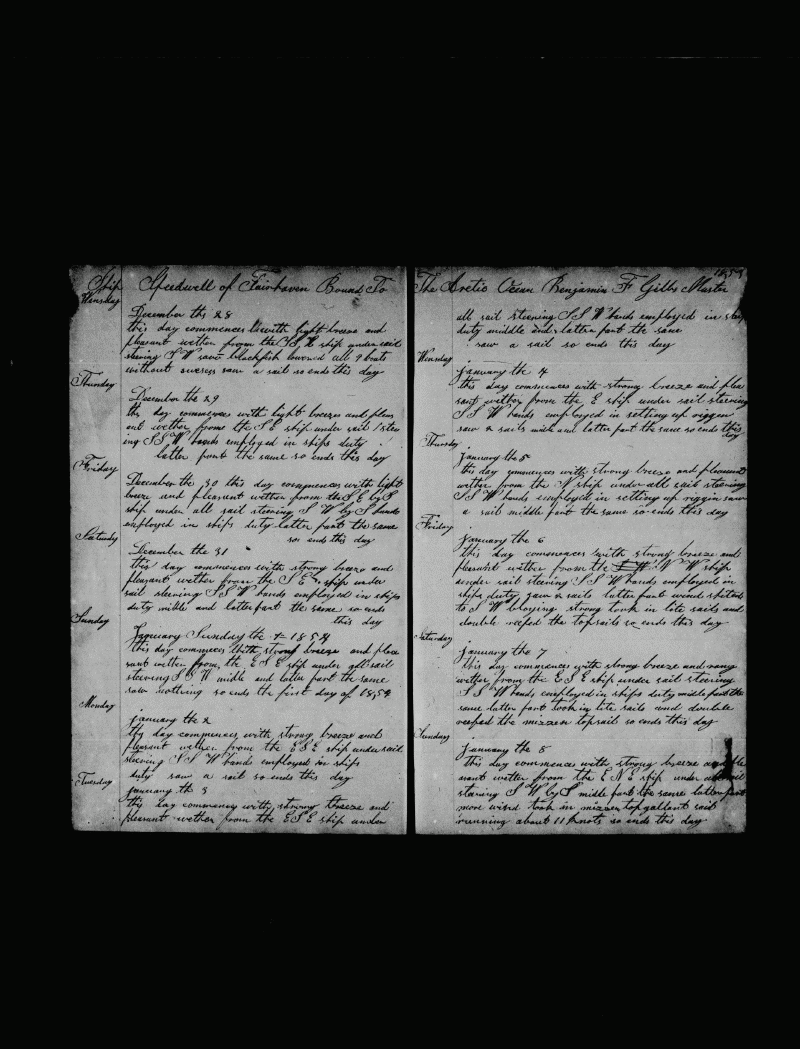 Ship Speedwell of Fairhaven Bound To
Wensday
December the 28
this day commences with light breeze and
pleasant wether from the S, E ship under sail
steering S W saw blackfish lowered all 4 boats
without success saw a sail so ends this day
Thursday
December the 29
this day commences with light breeze and pleas
ant wether from the S E ship under sail stee
ing S S W hands employed in ships duty
latter part the same so ends this day
Friday
December the 30 this day commences with light
breeze and pleasant wether from the S E by S
ship under all sail steering S W by S hands
employed in ships duty latter part the same
so ends this day
Saturday
December the 31
this day commences with strong breeze and
pleasant wether from the S E ship under
sail steering S S W hands employed in ships
duty midle and latter part the same so ends
this day
Sunday
January Sunday the 1 1854
this day commences with strong breeze and plea
sant wether from the E S E ship under all sail
steering S S W midle and latter part the same
saw nothing so ends the first day of 18,54
Monday
january the 2
thy day commences with strong breeze and
pleasant wether from the E S E ship under sail
steering S S W hands employed in ships
duty saw a sail so ends this day
Tuesday
january the 3
this day commences with strong breeze and
pleasant wether from the E S E ship under
18,54
The Arctic Ocean Benjamin F Gibbs Master
all sail steering S S W hands employed in ships
duty middle and latter part the same
saw a sail so ends this day
Wensday
january the 4
this day commences with strong breeze and plea
sant wether from the E ship under sail steering
S S W hands employed in setting up riggen
saw 2 sails midle and latter part the same so ends this
day
Thursday
january the 5
this day commences with strong breeze and pleasant
wether from the N ship under all sail steering
S S W hands employed in setting up riggin saw
a sail middle part the same so ends this day
Friday
january the 6
this day commences with strong breeze and
pleasant wether from the N W ship
under sail steering S S W hands employed in
ships duty saw 2 sails latter part wind shifted
to S W blowing strong took in lite sails and
double reefed the topsails so ends this day
Saturday
january the 7
this day commences with strong breeze and
wether from the E S E ship under sail steering
S S W hands employed in ships duty midle part the
same latter part took in lite sails and double
reefed the mizzen topsail so ends this day
Sunday
january the 8
this day commences with strong breeze and ple
sant wether from the E N E ship under all sail
steering S W by S midle part the same latter part
more wind took in mizzen topgallant sail
running about 11 knots so ends this day